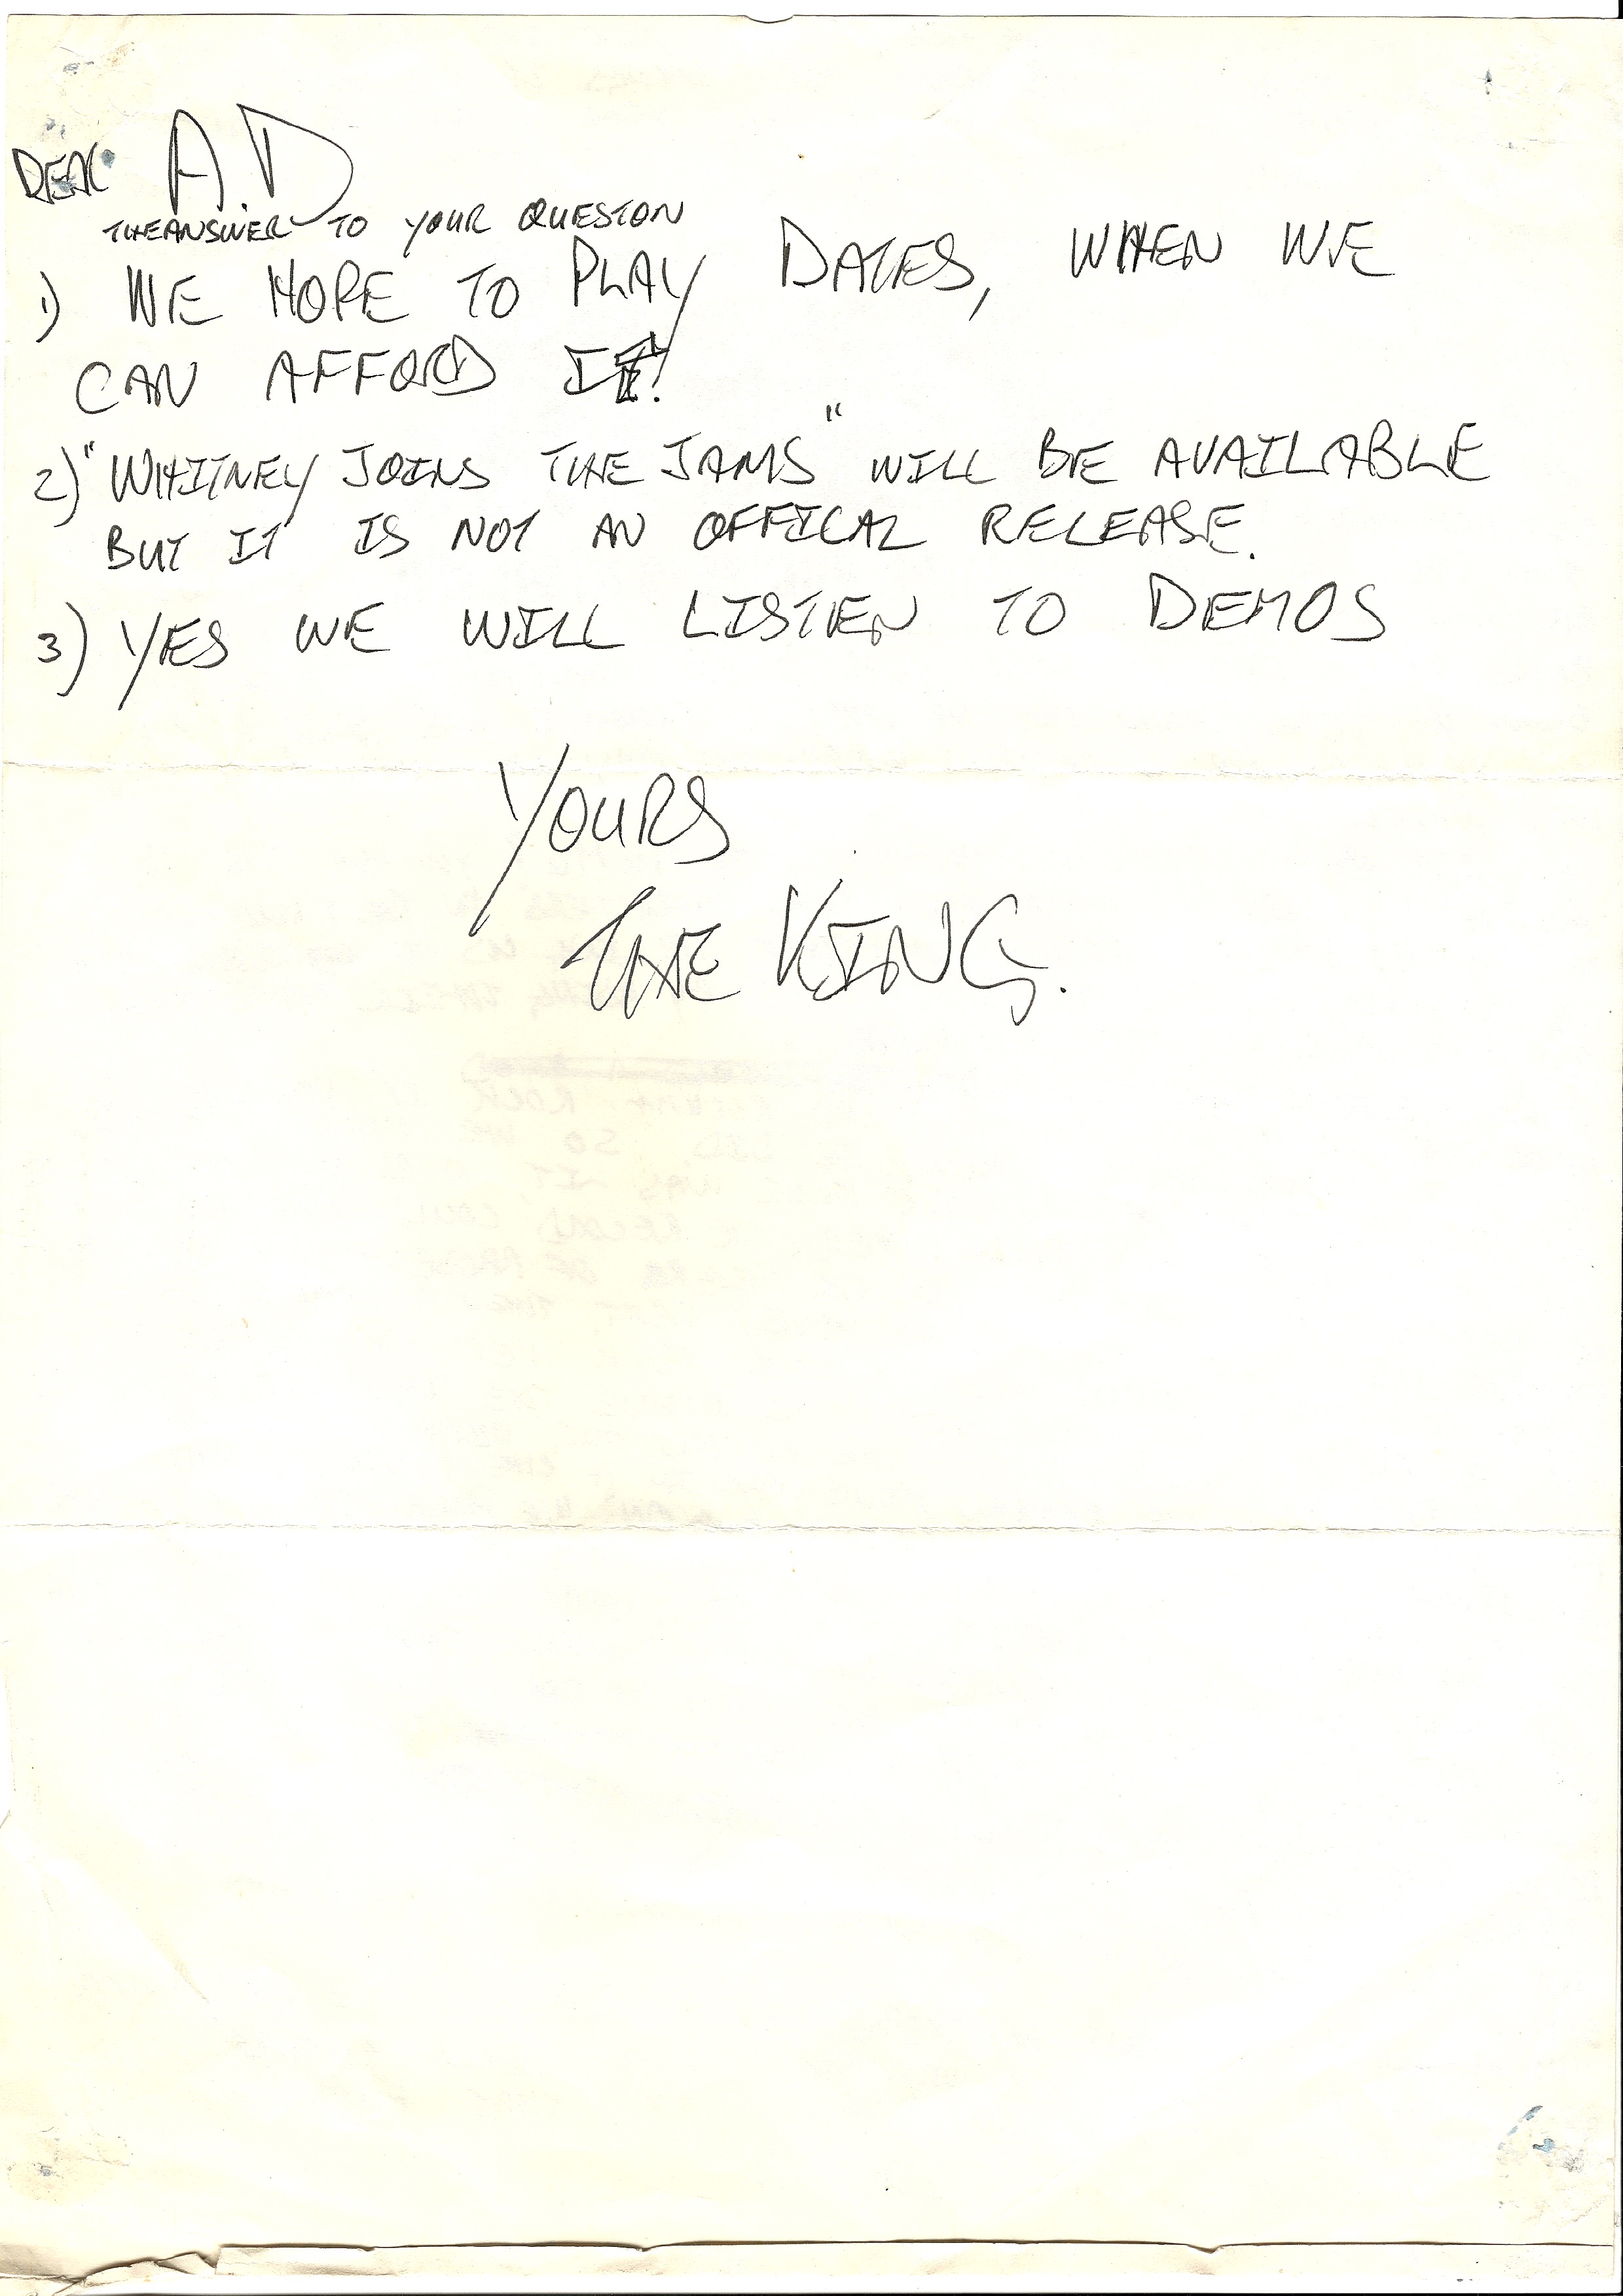 DEAR A.D
THE ANSWER TO YOUR QUESTON
1) WE HOPE TO PLAY DATES, WHEN WE
CAN AFFORD IT!
2) "WHITNEY JOINS THE JAMS" WILL BE AVAILABLE
BUT IT IS NOT AN OFFICAL RELEASE.
3) YES WE WILL LISTEN TO DEMOS
YOURS
THE KING.